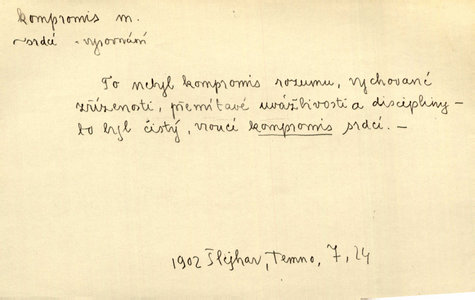 kompromis m.
~srdcí - vyrovnání
To nebyl kompromis rozumu, vychované
zřízenosti, přemítavé uvážlivosti a disciplíny -
to byl čistý, vroucí kompromis srdcí. -
1902 Šlejhar, Temno, 7, 24